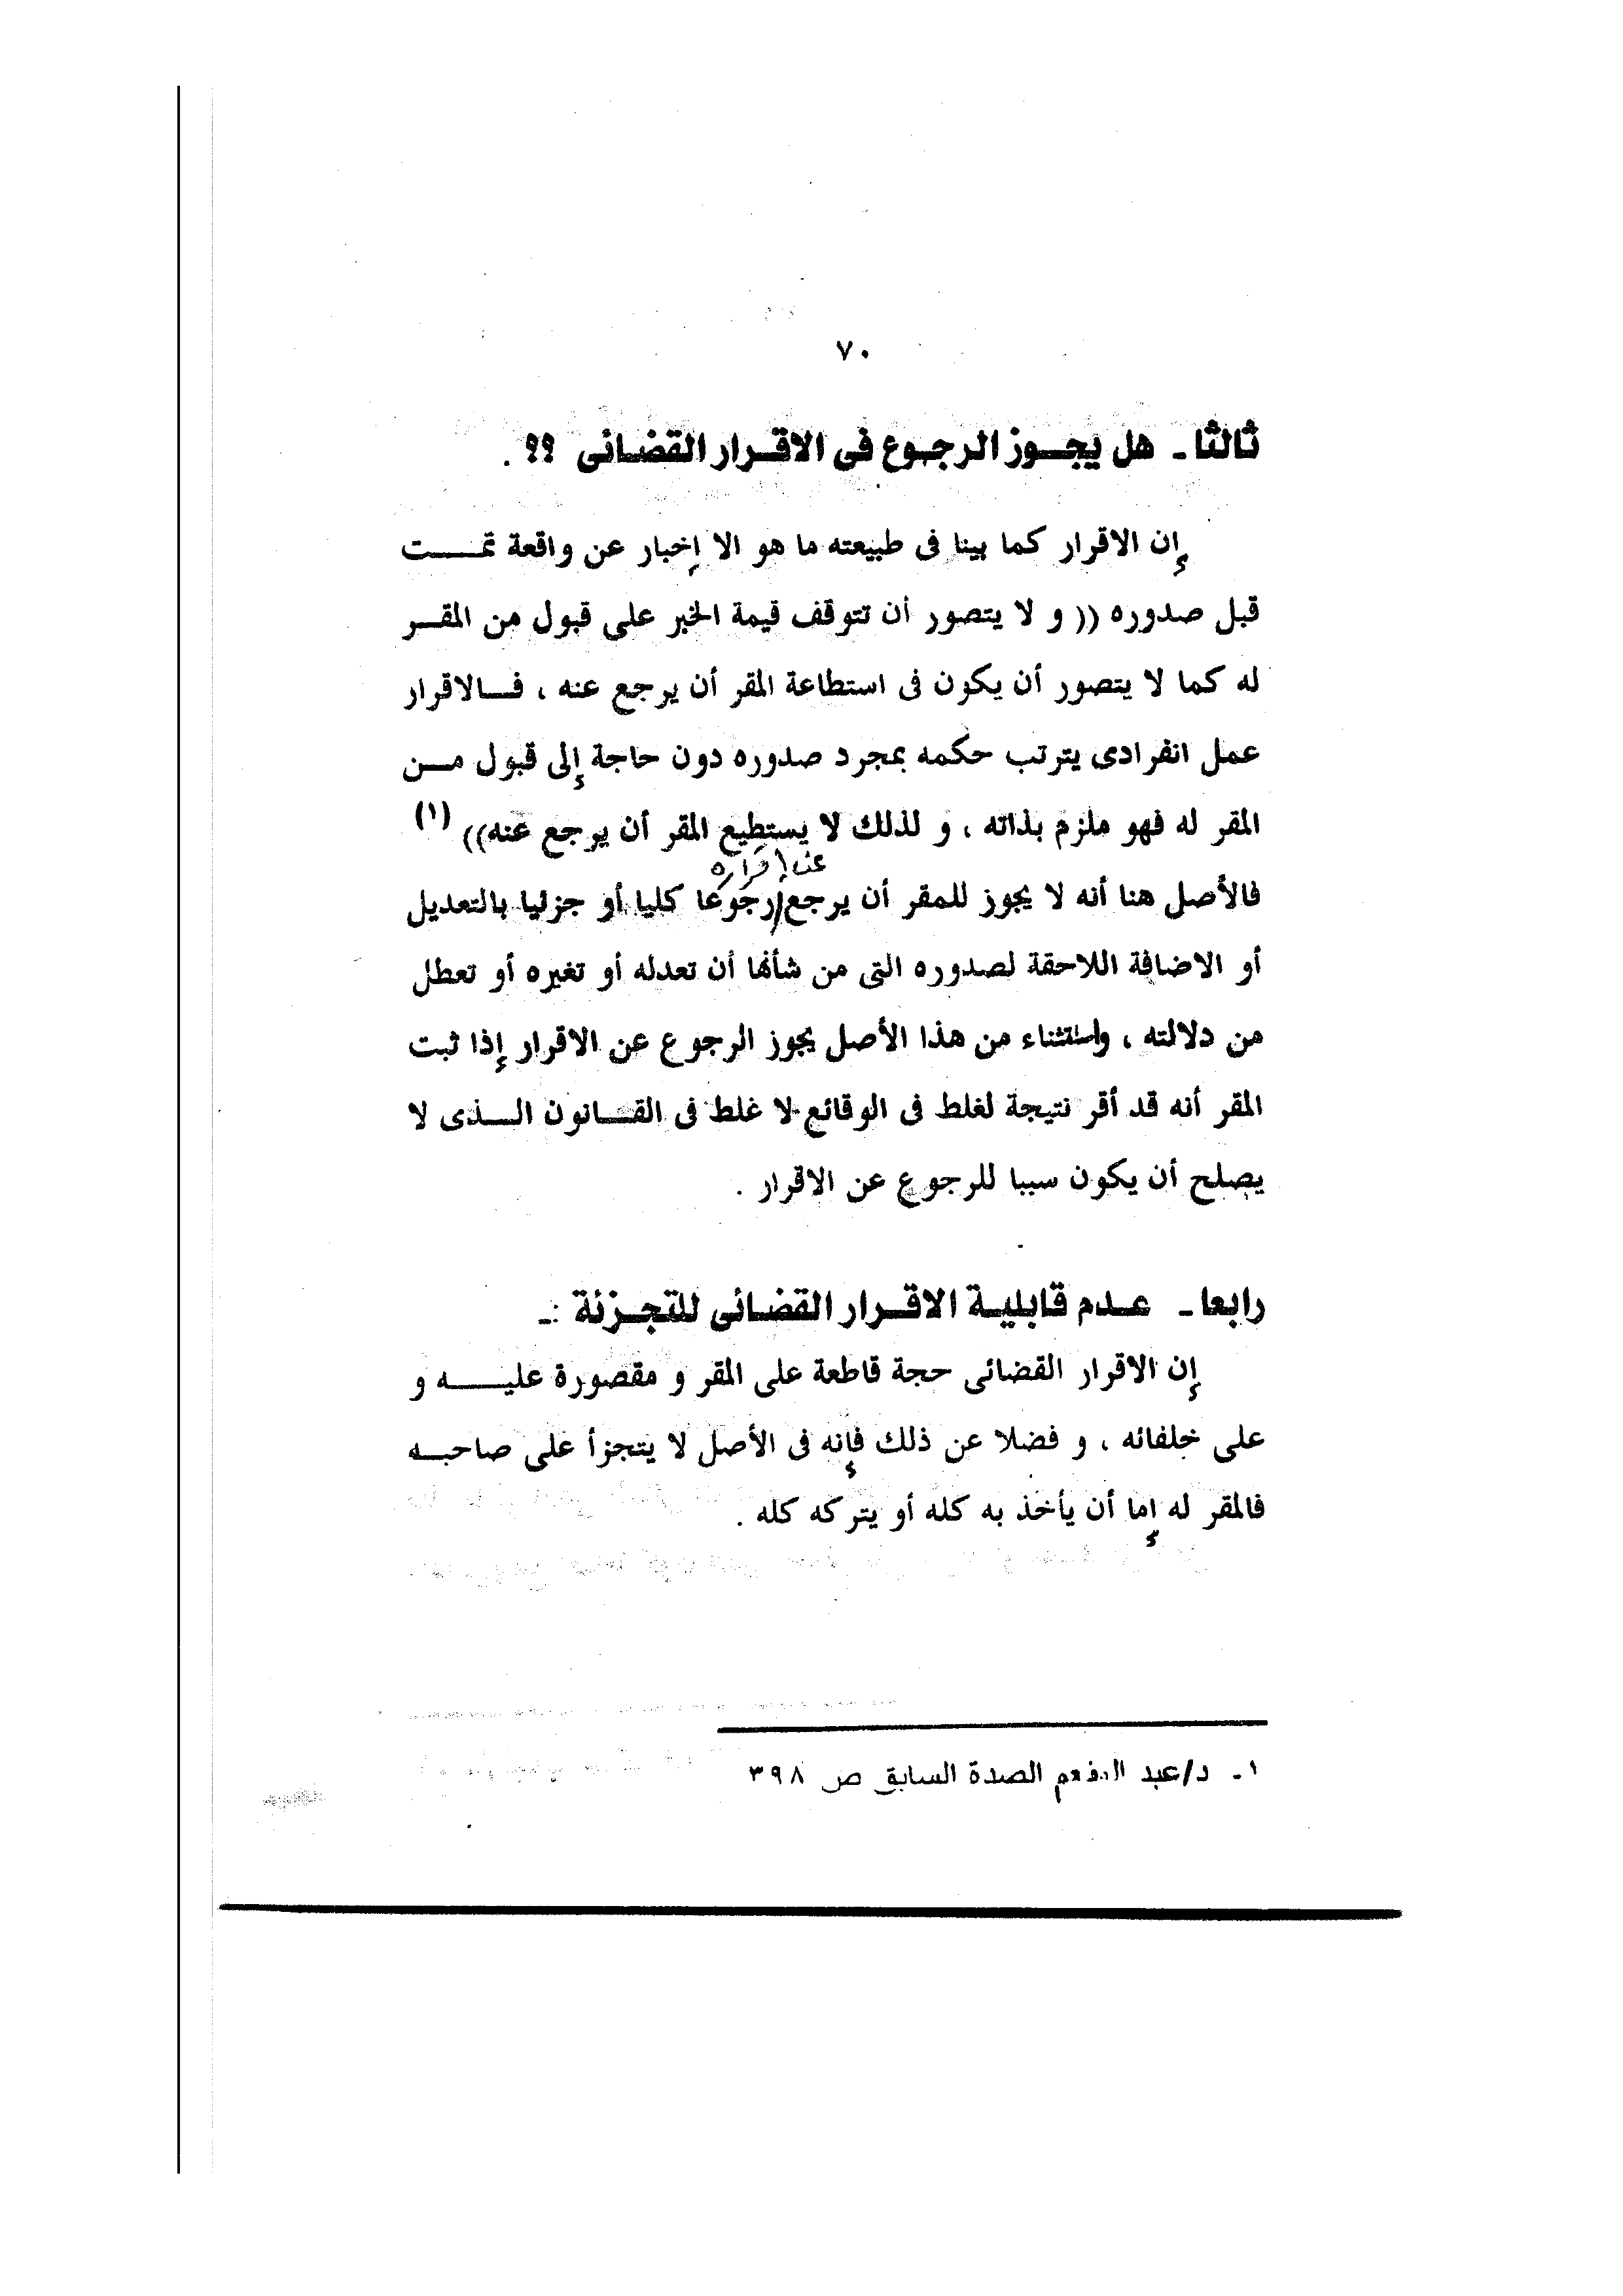 ٧٠
ثالثا ـ هل يجوز الرجوع فى الاقرار القضائى ؟؟ .
إن الاقرار كما بينا فى طبيعته ما هو الا إخبار عن واقعة تمت
قبل صدوره (( و لا يتصور أن تتوقف قيمة الخبر على قبول من المقر
له كما لا يتصور أن يكون فى استطاعة المقر أن يرجع عنه ، فالاقرار
عمل انفرادى يترتب حكمه بمجرد صدوره دون حاجة إلى قبول من
المقر له فهو ملزم بذاته ، و لذلك لا يستطيع المقر أن يرجع عنه)) (١)
عن إقراره
فالأصل هنا أنه لا يجوز للمقر أن يرجع/رجوعا كليا أو جزئيا بالتعديل
أو الاضافة اللاحقة لصدوره التى من شأنها أن تعدله أو تغيره أو تعطل
من دلالته ، واستثناء من هذا الأصل يجوز الرجوع عن الاقرار إذا ثبت
المقر أنه قد أقر نتيجة لغلط فى الوقائع لا غلط فى القانون الذى لا
يصلح أن يكون سببا للرجوع عن الاقرار .
رابعا ـ عدم قابلية الاقرار القضائى للتجزئة :ـ
إن الاقرار القضائى حجة قاطعة على المقر و مقصورة عليه و
على خلفائه ، و فضلا عن ذلك فإنه فى الأصل لا يتجزأ على صاحبه
فالمقر له إما أن يأخذ به كله أو يتركه كله .
١ـ د/عبد المنعم الصدة السابق ص ٣٩٨